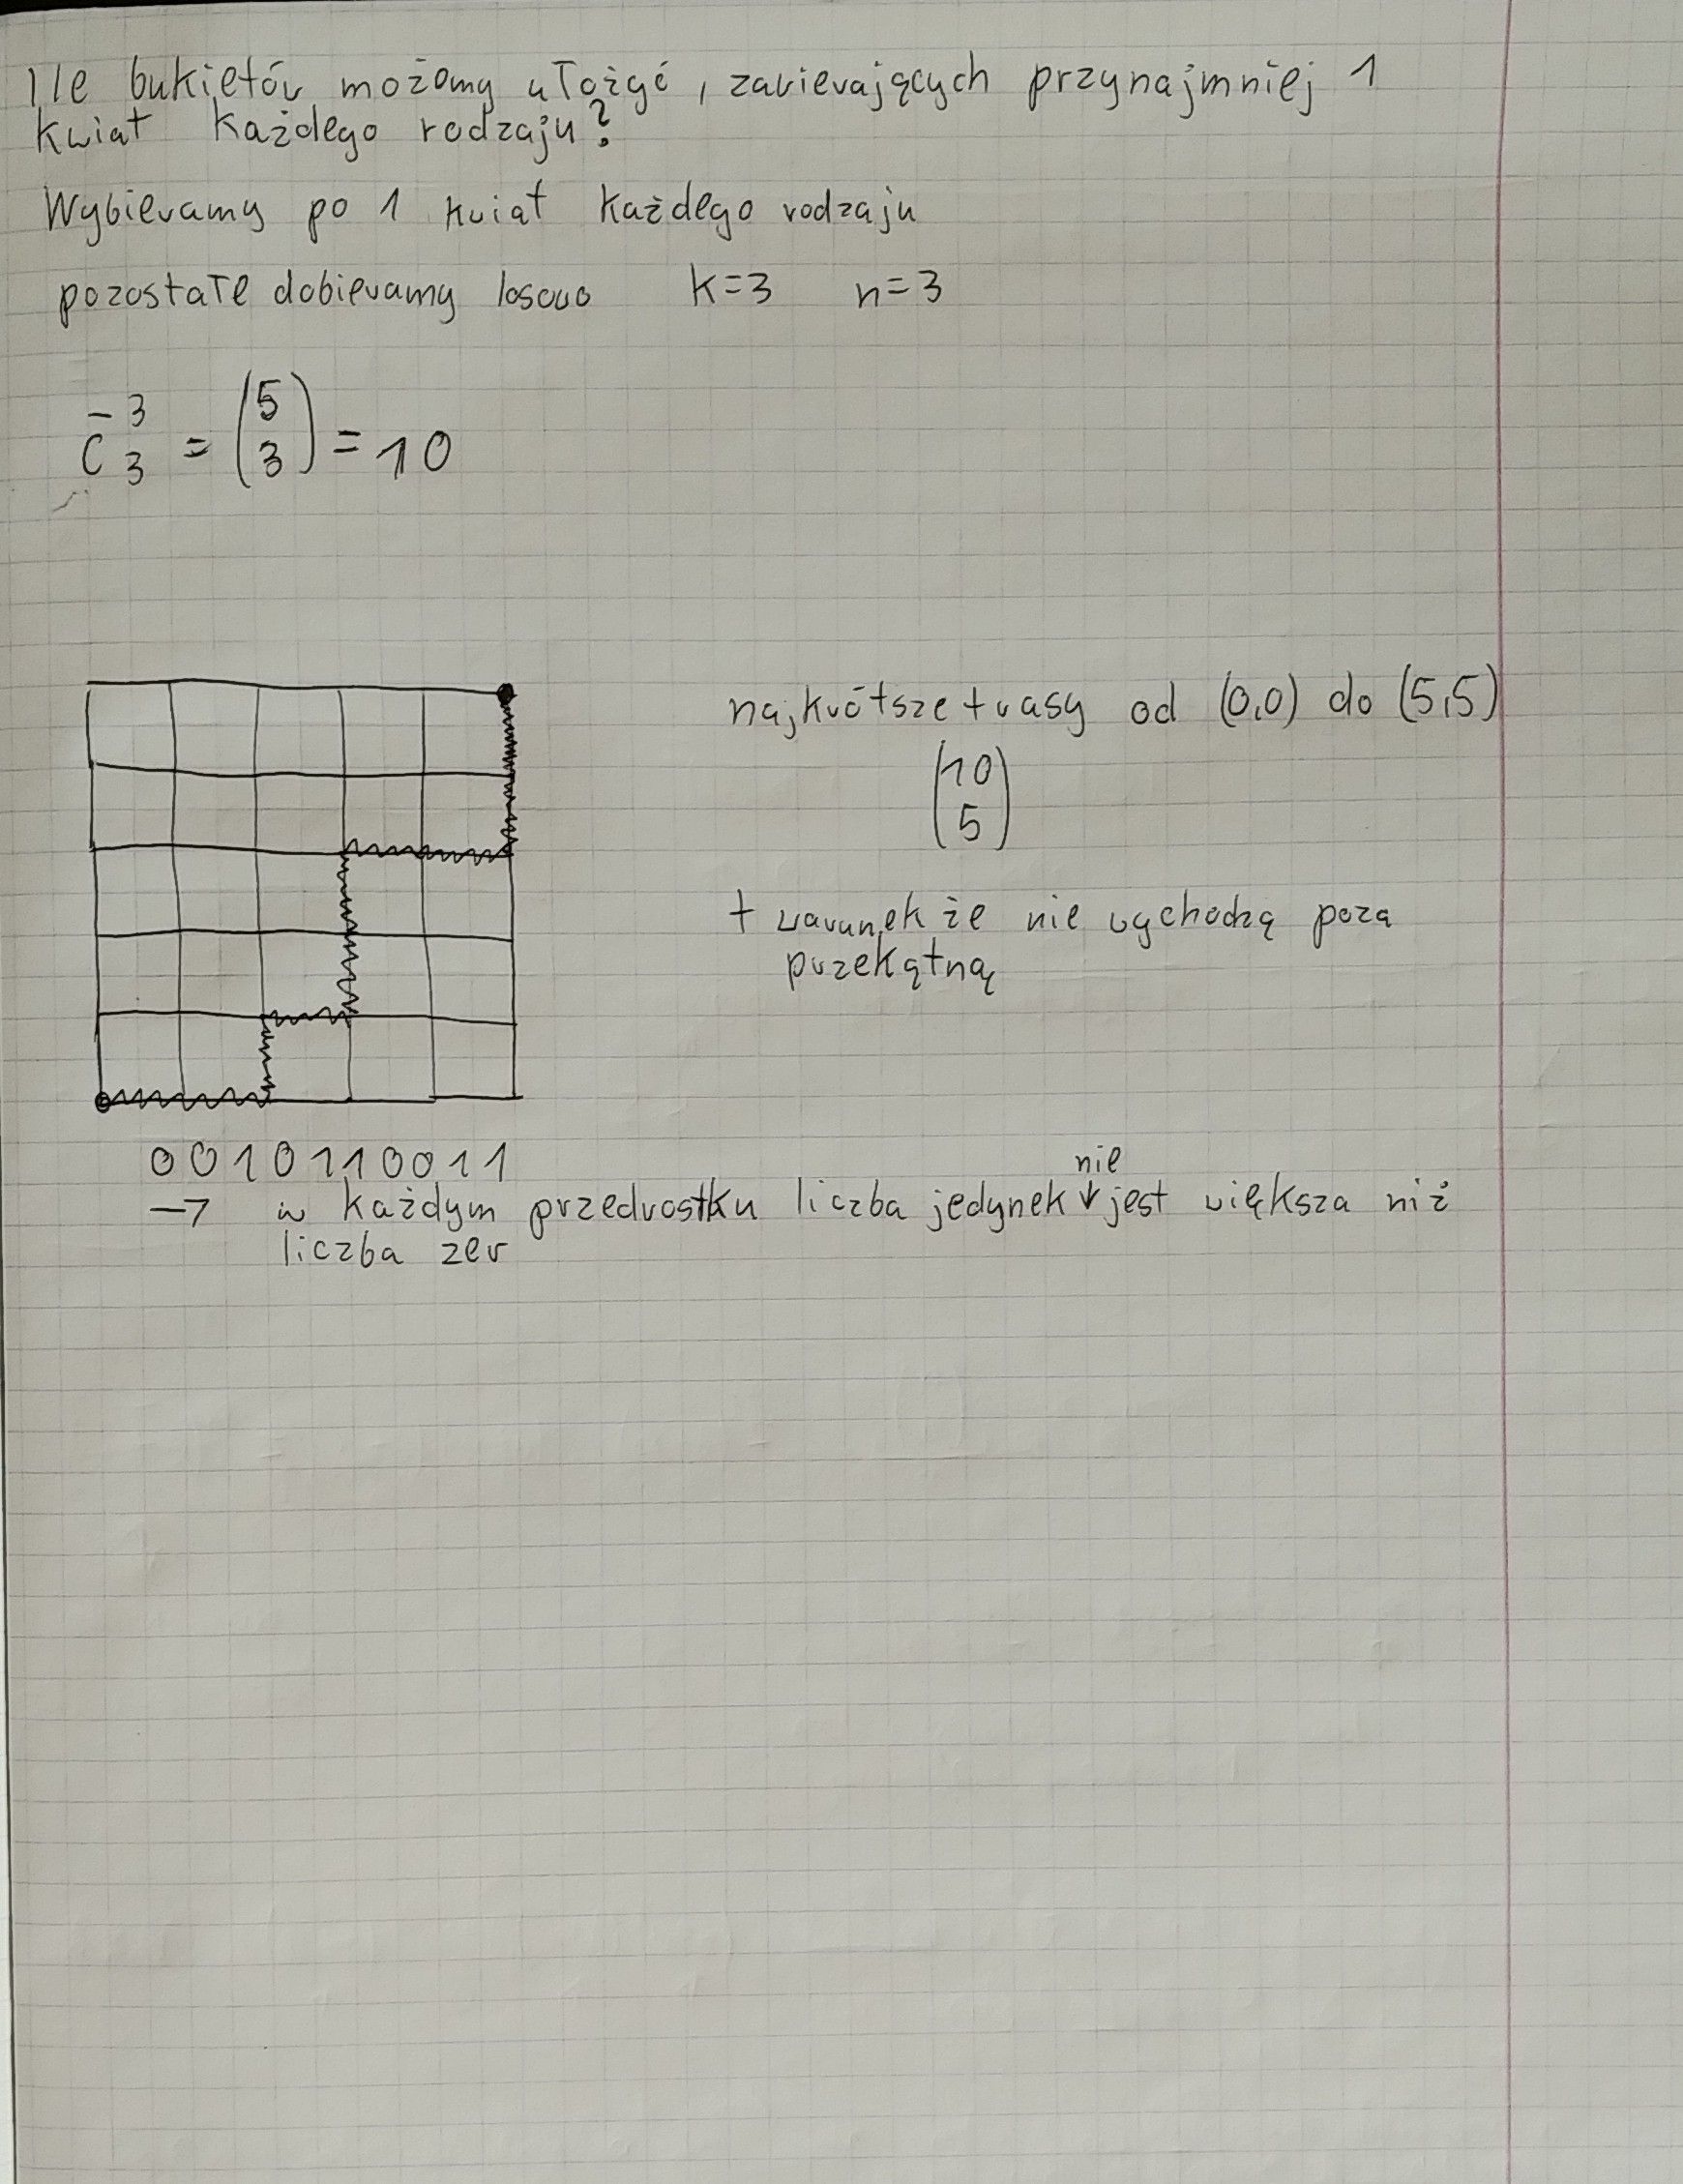 Ile bukietów możemy ułożyć, zawierających przynajmniej 1
kwiat każdego rodzaju?
Wybieramy po 1 kwiat każdego rodzaju
pozostałe dobieramy losowo k=3 n=3
C̄ ³₃ = (5 3) = 10
najkrótsze trasy od (0,0) do (5,5)
(10 5)
+ warunek że nie wychodzą poza
przekątną
0010110011
nie
→ w każdym przedrostku liczba jedynek ↓ jest większa niż
liczba zer